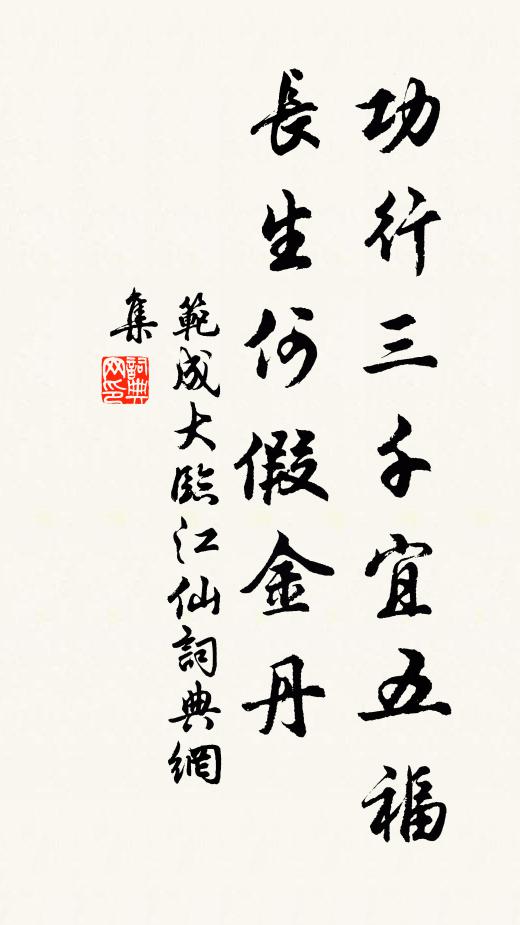 功行三千宜五福
長生何假金丹
範成大臨江仙詞典網
集
詞典网印